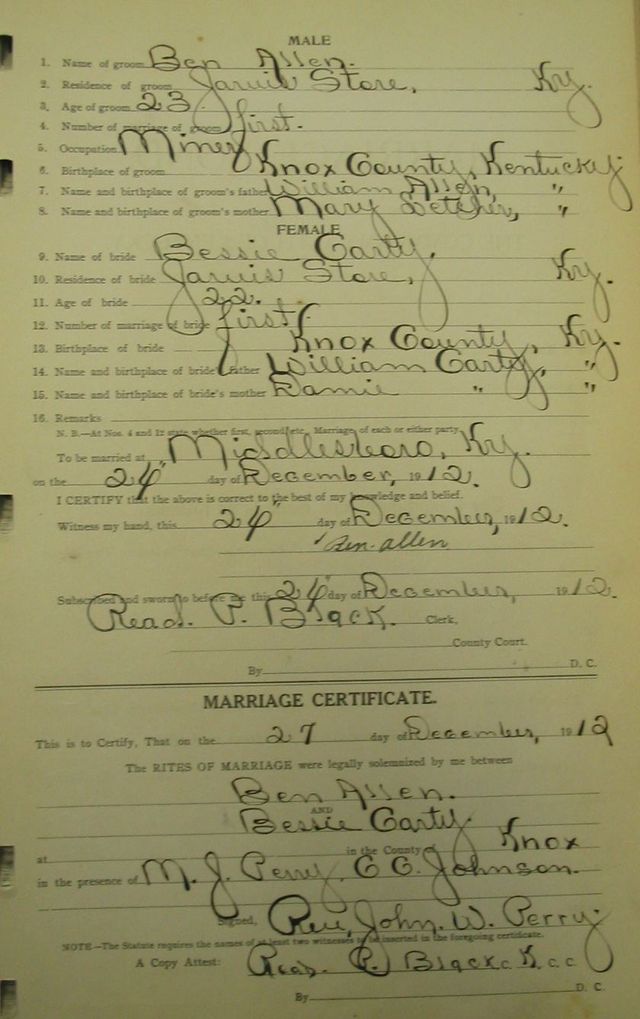 MALE
1. Name of groom Ben Allen.
2. Residence of groom Jarvis Store, Ky.
3. Age of groom 23.
4. Number of marriage of groom first.
5. Occupation Miner
6. Birthplace of groom Knox County, Kentucky.
7. Name and birthplace of groom's father William Allen, "
8. Name and birthplace of groom's mother Mary Letcher, "
FEMALE
9. Name of bride Bessie Carty,
10. Residence of bride Jarvis Store, Ky.
11. Age of bride 22.
12. Number of marriage of bride first.
13. Birthplace of bride Knox County, Ky.
14. Name and birthplace of bride's father William Carty, "
15. Name and birthplace of bride's mother " "
16. Remarks
N. B.—At Nos. 4 and 12 state whether first, second, etc., Marriage of each or either party.
To be married at Middlesboro, Ky.
on the 24" day of December, 1912.
I CERTIFY that the above is correct to the best of my knowledge and belief.
Witness my hand, this 24" day of December, 1912.
Ben Allen
Subscribed and sworn to before me this 24" day of December, 1912.
Read. P. Black. Clerk,
County Court.
By D. C.
MARRIAGE CERTIFICATE.
This is to Certify, That on the 27 day of December, 1912
The RITES OF MARRIAGE were legally solemnized by me between
Ben Allen.
AND
Bessie Carty.
at in the County of Knox
in the presence of M. J. Perry, C. C. Johnson.
Signed, Rev, John. W. Perry.
NOTE—The Statute requires the names of at least two witnesses to be inserted in the foregoing certificate.
A Copy Attest: Read. P. Black C. K. C. C
By D. C.